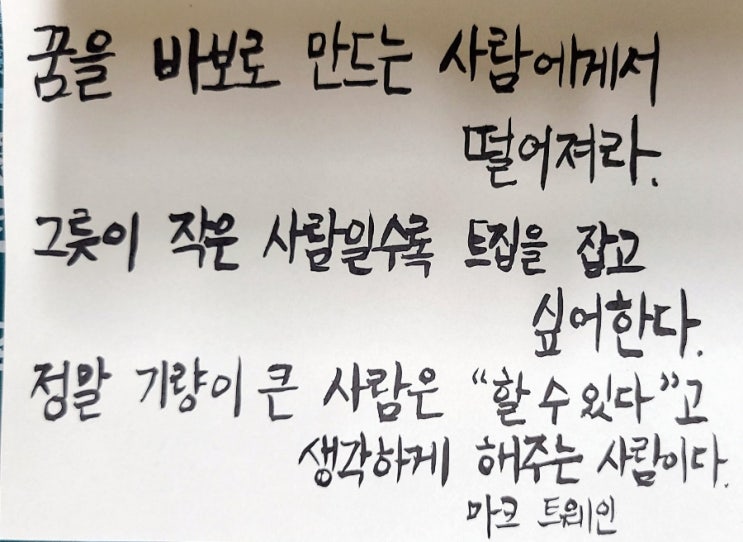 꿈을 바보로 만드는 사람에게서
떨어져라.
그릇이 작은 사람일수록 트집을 잡고
싶어한다.
정말 기량이 큰 사람은 “할 수 있다”고
생각하게 해주는 사람이다.
마크 트웨인